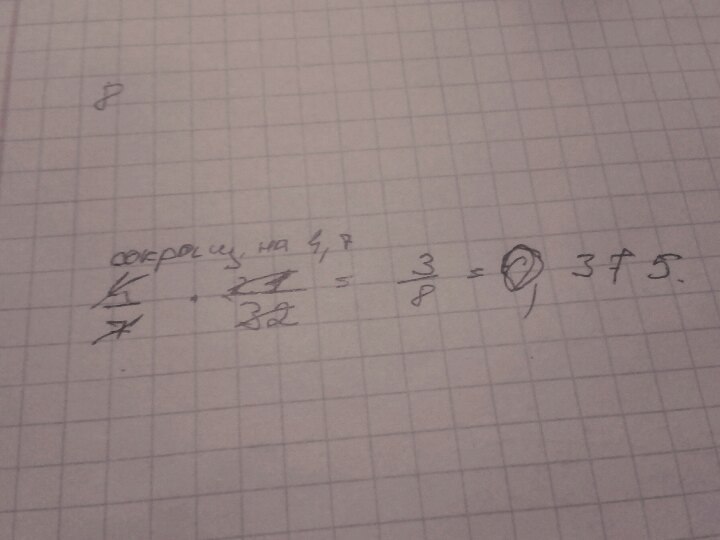 8
сокращ. на 4, 7
4/7 · 21/32 = 3/8 = 0,375.